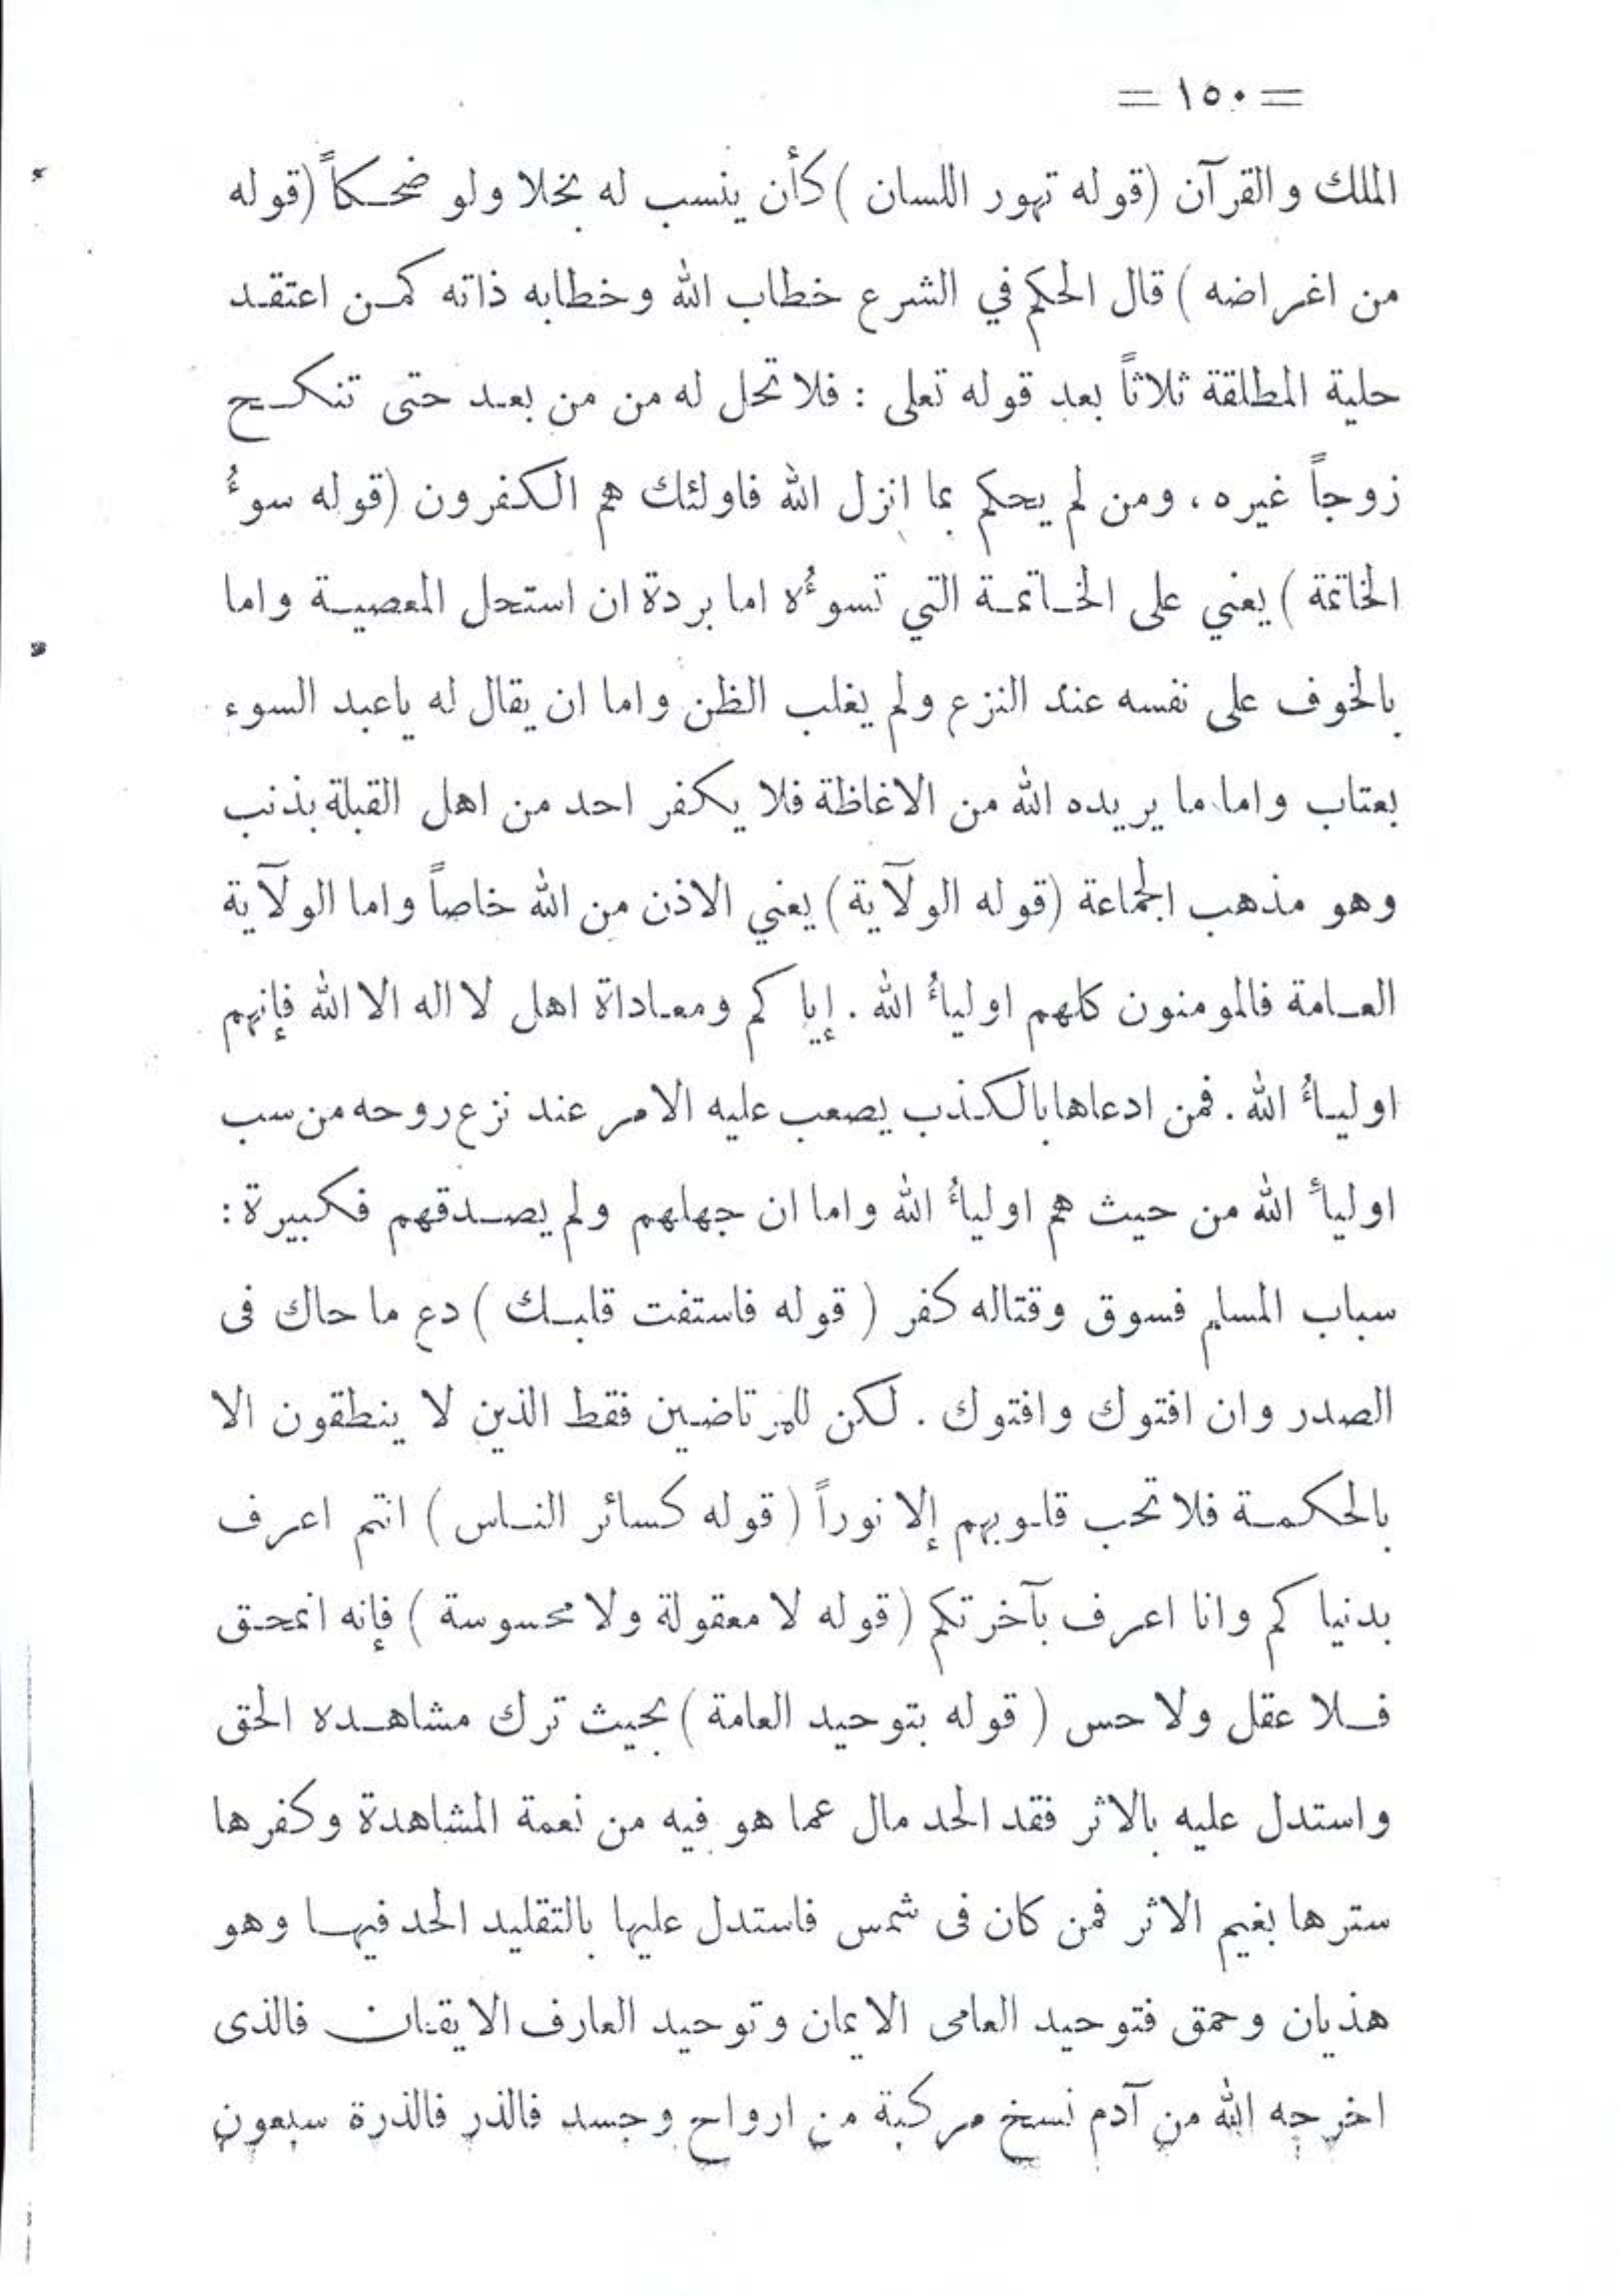 = ١٥٠ =
الملك والقرآن (قوله تهور اللسان) كأن ينسب له بخلا ولو ضحكاً (قوله
من اغراضه) قال الحكم في الشرع خطاب الله وخطابه ذاته كمن اعتقد
حلية المطلقة ثلاثاً بعد قوله تعلى : فلا تحل له من من بعد حتى تنكح
زوجاً غيره ، ومن لم يحكم بما انزل الله فاولئك هم الكفرون (قوله سوءُ
الخاتمة) يعني على الخاتمة التي تسوءُه اما بردة ان استحل المعصية واما
بالخوف على نفسه عند النزع ولم يغلب الظن واما ان يقال له ياعبد السوء
بعتاب واما ما يريده الله من الاغاظة فلا يكفر احد من اهل القبلة بذنب
وهو مذهب الجماعة (قوله الولآية) يعني الاذن من الله خاصاً واما الولآية
العامة فالمومنون كلهم اولياءُ الله . إياكم ومعاداة اهل لا اله الا الله فإنهم
اولياءُ الله . فمن ادعاها بالكذب يصعب عليه الامر عند نزع روحه من سب
اولياءَ الله من حيث هم اولياءُ الله واما ان جهلهم ولم يصدقهم فكبيرة :
سباب المسلم فسوق وقتاله كفر ( قوله فاستفت قلبك ) دع ما حاك فى
الصدر وان افتوك وافتوك . لكن للمرتاضين فقط الذين لا ينطقون الا
بالحكمة فلا تحب قلوبهم إلا نوراً ( قوله كسائر الناس ) انتم اعرف
بدنياكم وانا اعرف بآخرتكم (قوله لا معقولة ولا محسوسة ) فإنه انمحق
فلا عقل ولا حس ( قوله بتوحيد العامة ) بحيث ترك مشاهده الحق
واستدل عليه بالاثر فقد الحد مال عما هو فيه من نعمة المشاهدة وكفرها
سترها بغيم الاثر فمن كان فى شمس فاستدل عليها بالتقليد الحد فيها وهو
هذيان وحمق فتوحيد العامى الايمان وتوحيد العارف الايقان فالذى
اخرجه الله من آدم نسخ مركبة من ارواح وجسد فالذر فالذرة سبعون